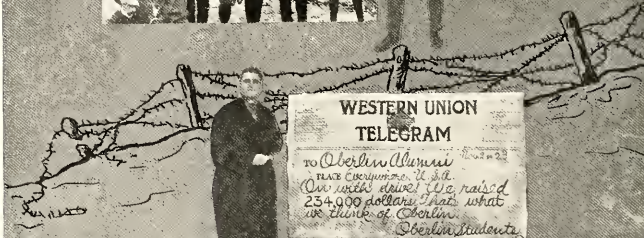 WESTERN UNION
TELEGRAM
TO Oberlin Alumni
PLACE Everywhere, U.S.A.
On with drive! We raised
234,000 dollars. That's what
we think of Oberlin.
Oberlin Students